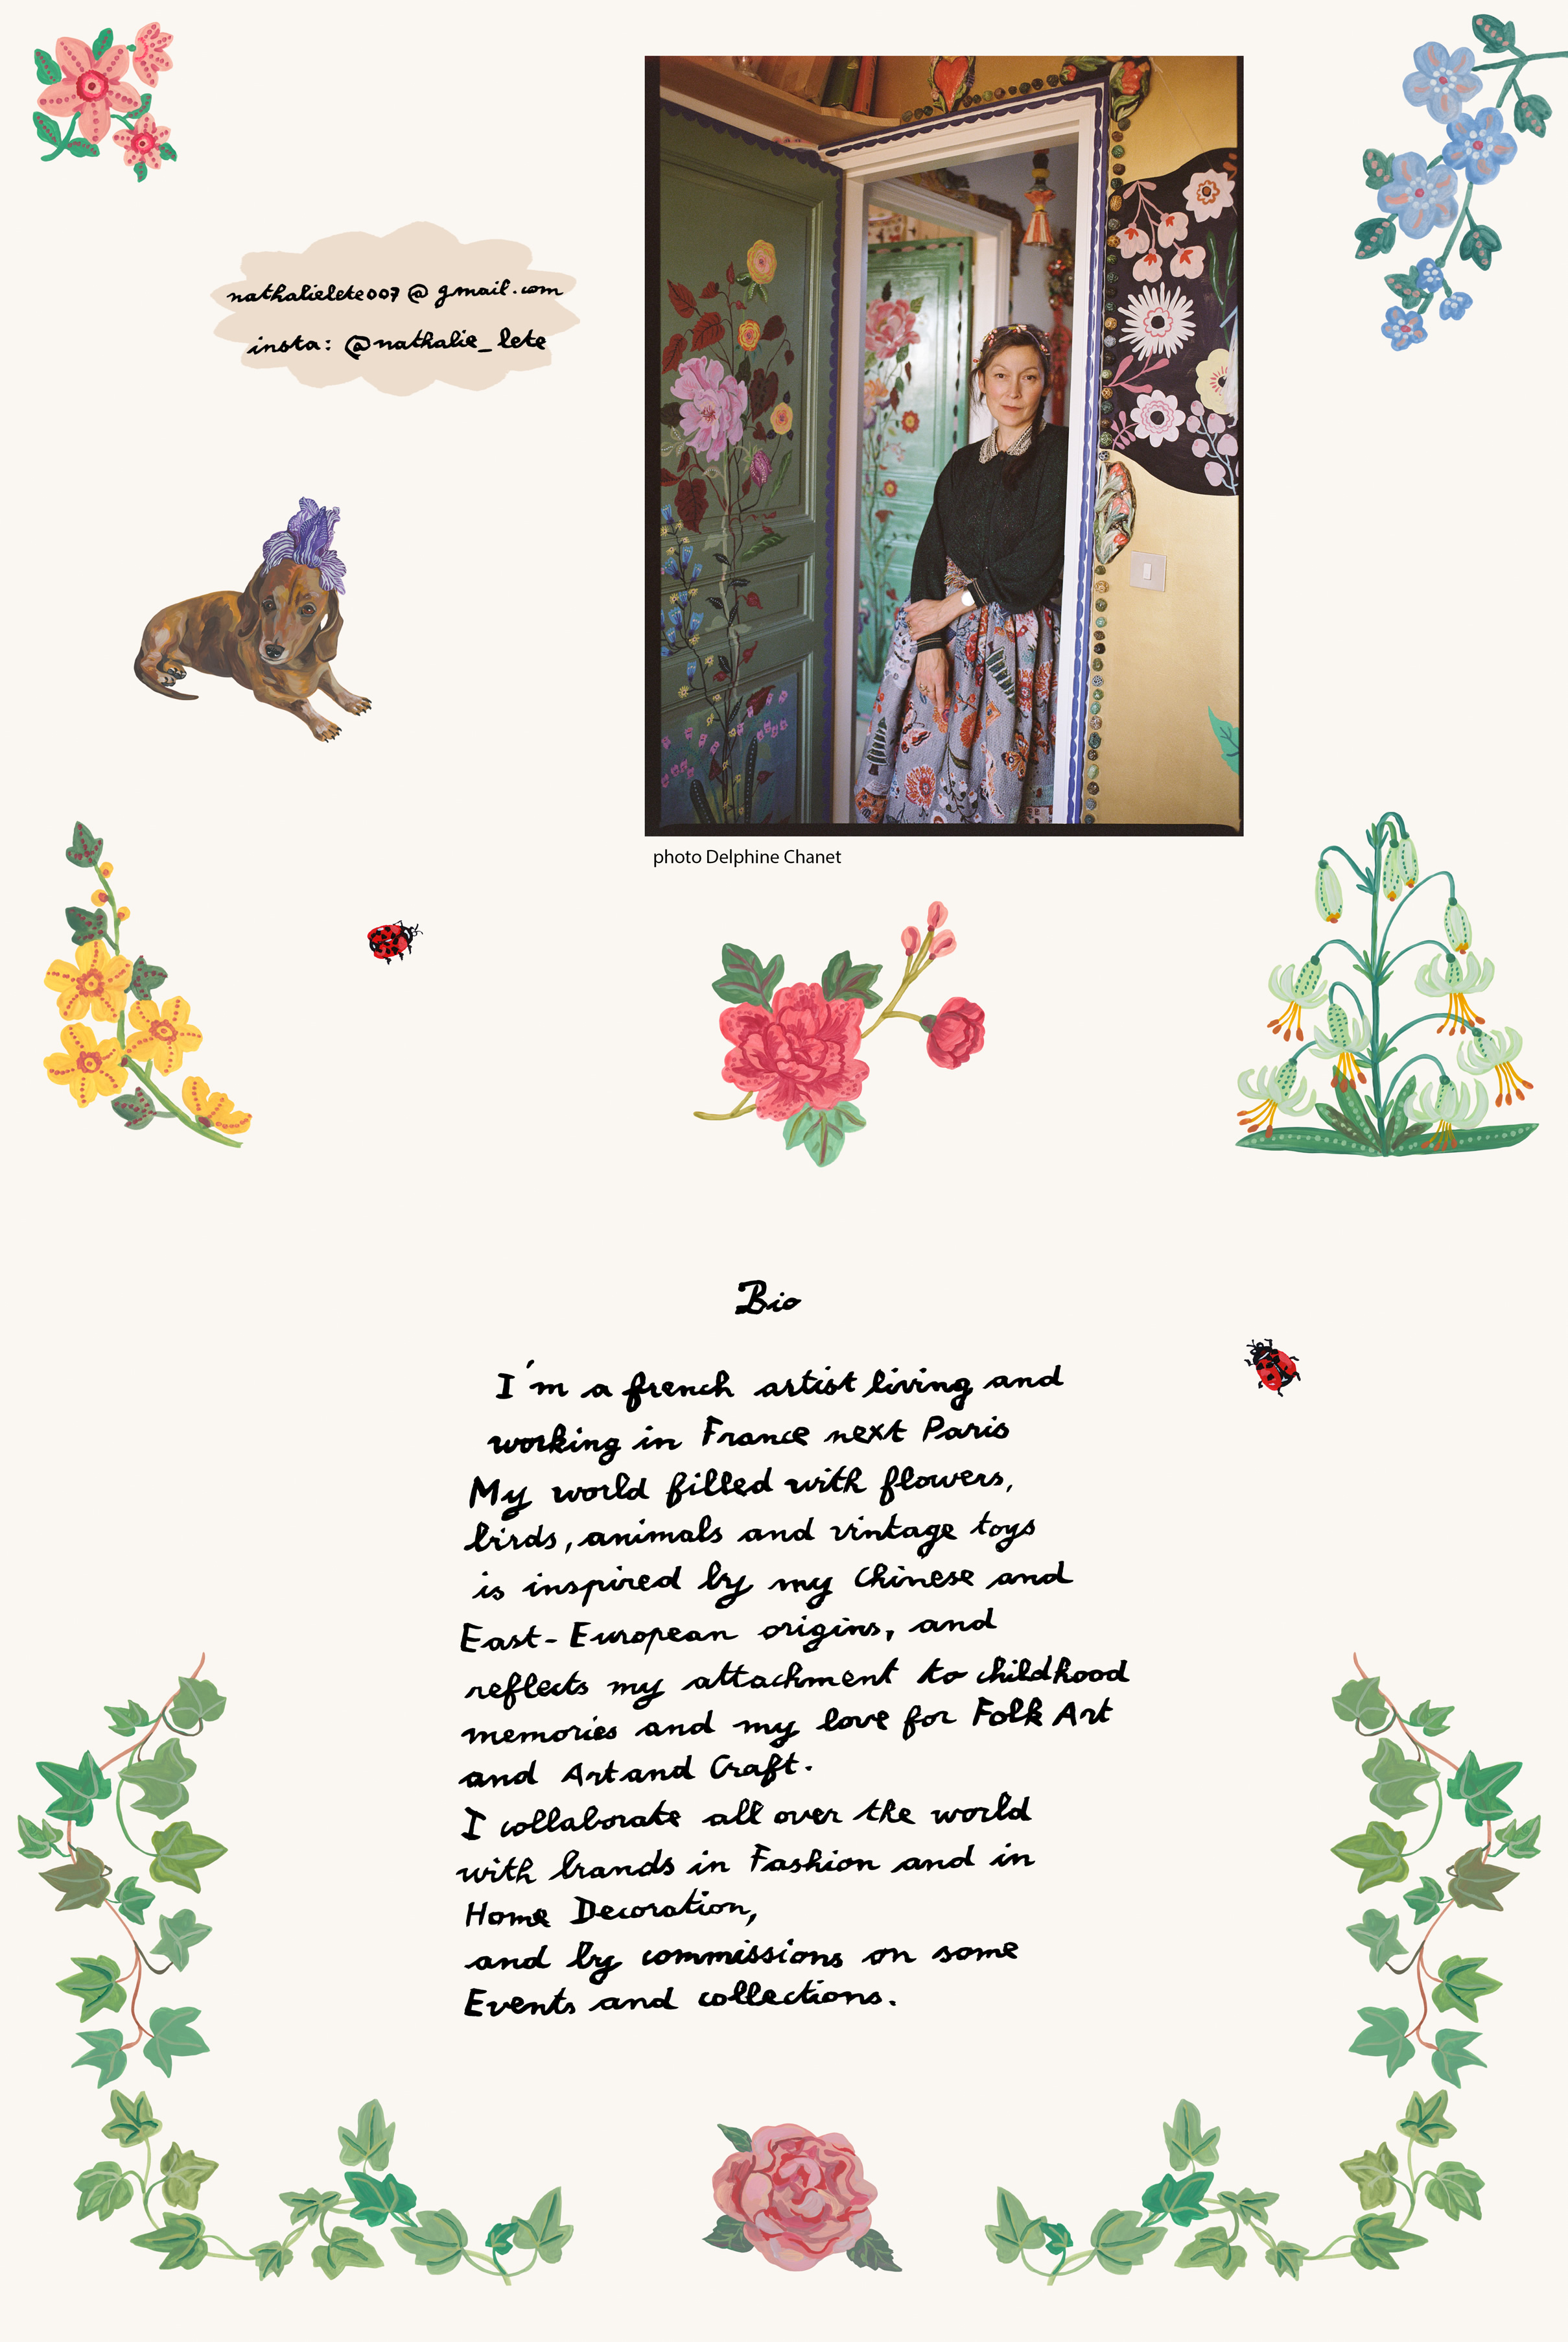 nathalielete007@gmail.com
insta: @nathalie_lete
photo Delphine Chanet
Bio
I'm a french artist living and
working in France next Paris
My world filled with flowers,
birds, animals and vintage toys
is inspired by my Chinese and
East-European origins, and
reflects my attachment to childhood
memories and my love for Folk Art
and Art and Craft.
I collaborate all over the world
with brands in Fashion and in
Home Decoration,
and by commissions on some
Events and collections.